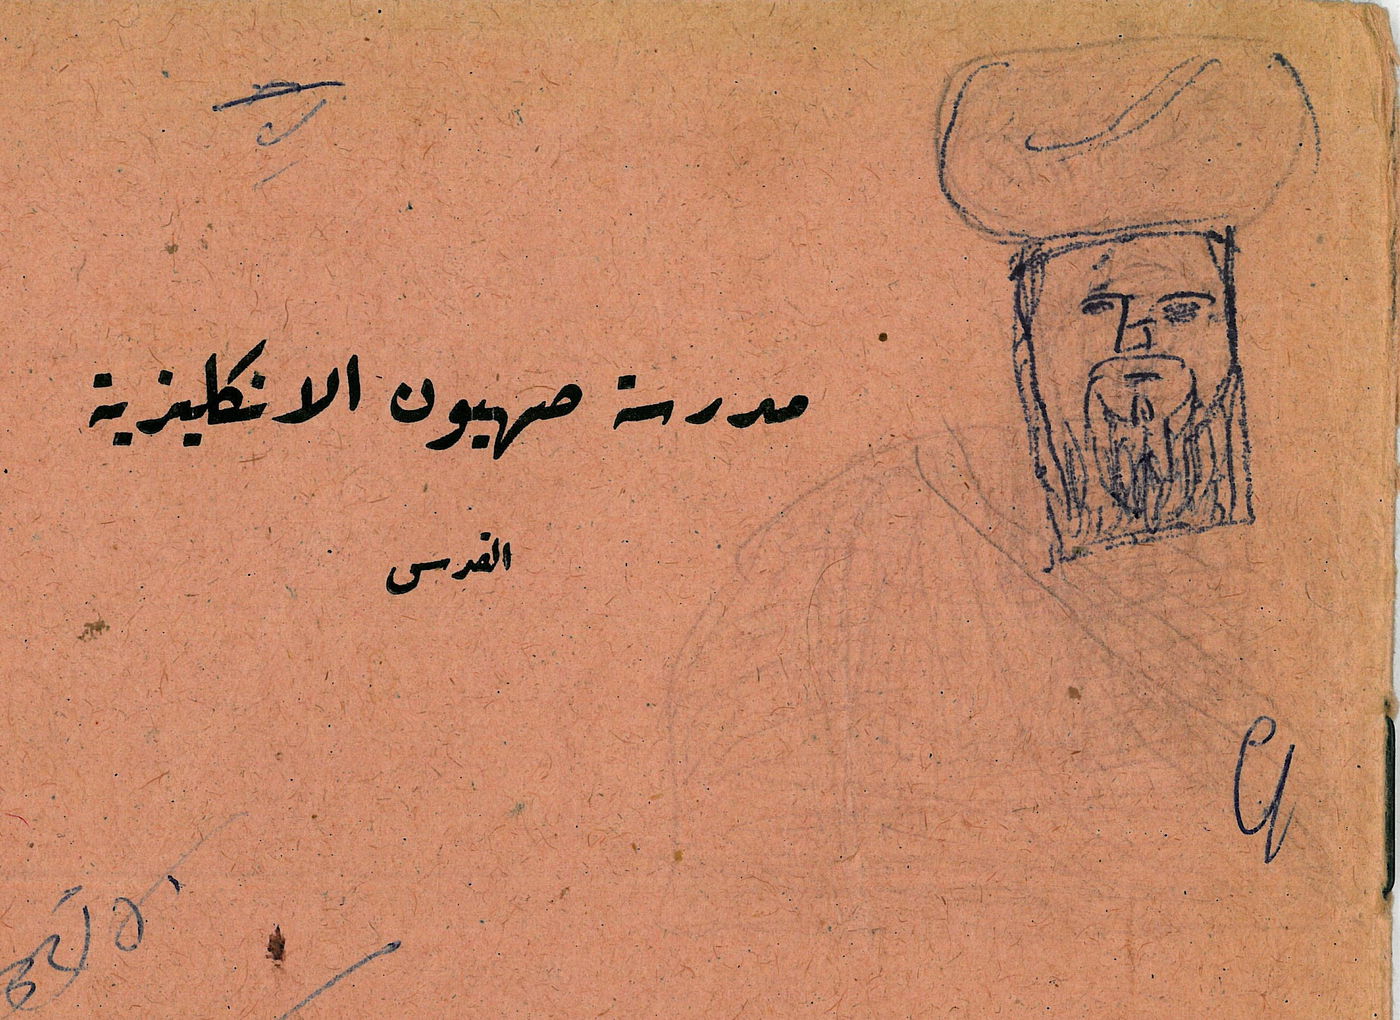 مدرسة صهيون الانكليزية
القدس